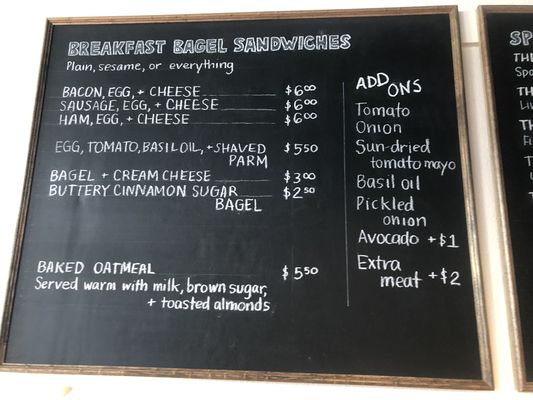 BREAKFAST BAGEL SANDWICHES
Plain, sesame, or everything
BACON, EGG, + CHEESE $6⁰⁰
SAUSAGE, EGG, + CHEESE $6⁰⁰
HAM, EGG, + CHEESE $6⁰⁰
EGG, TOMATO, BASIL OIL, + SHAVED $5⁵⁰
PARM
BAGEL + CREAM CHEESE $3⁰⁰
BUTTERY CINNAMON SUGAR $2⁵⁰
BAGEL
BAKED OATMEAL $5⁵⁰
Served warm with milk, brown sugar,
+ toasted almonds
ADD ONS
Tomato
Onion
Sun-dried
tomato mayo
Basil oil
Pickled
onion
Avocado +$1
Extra
meat +$2